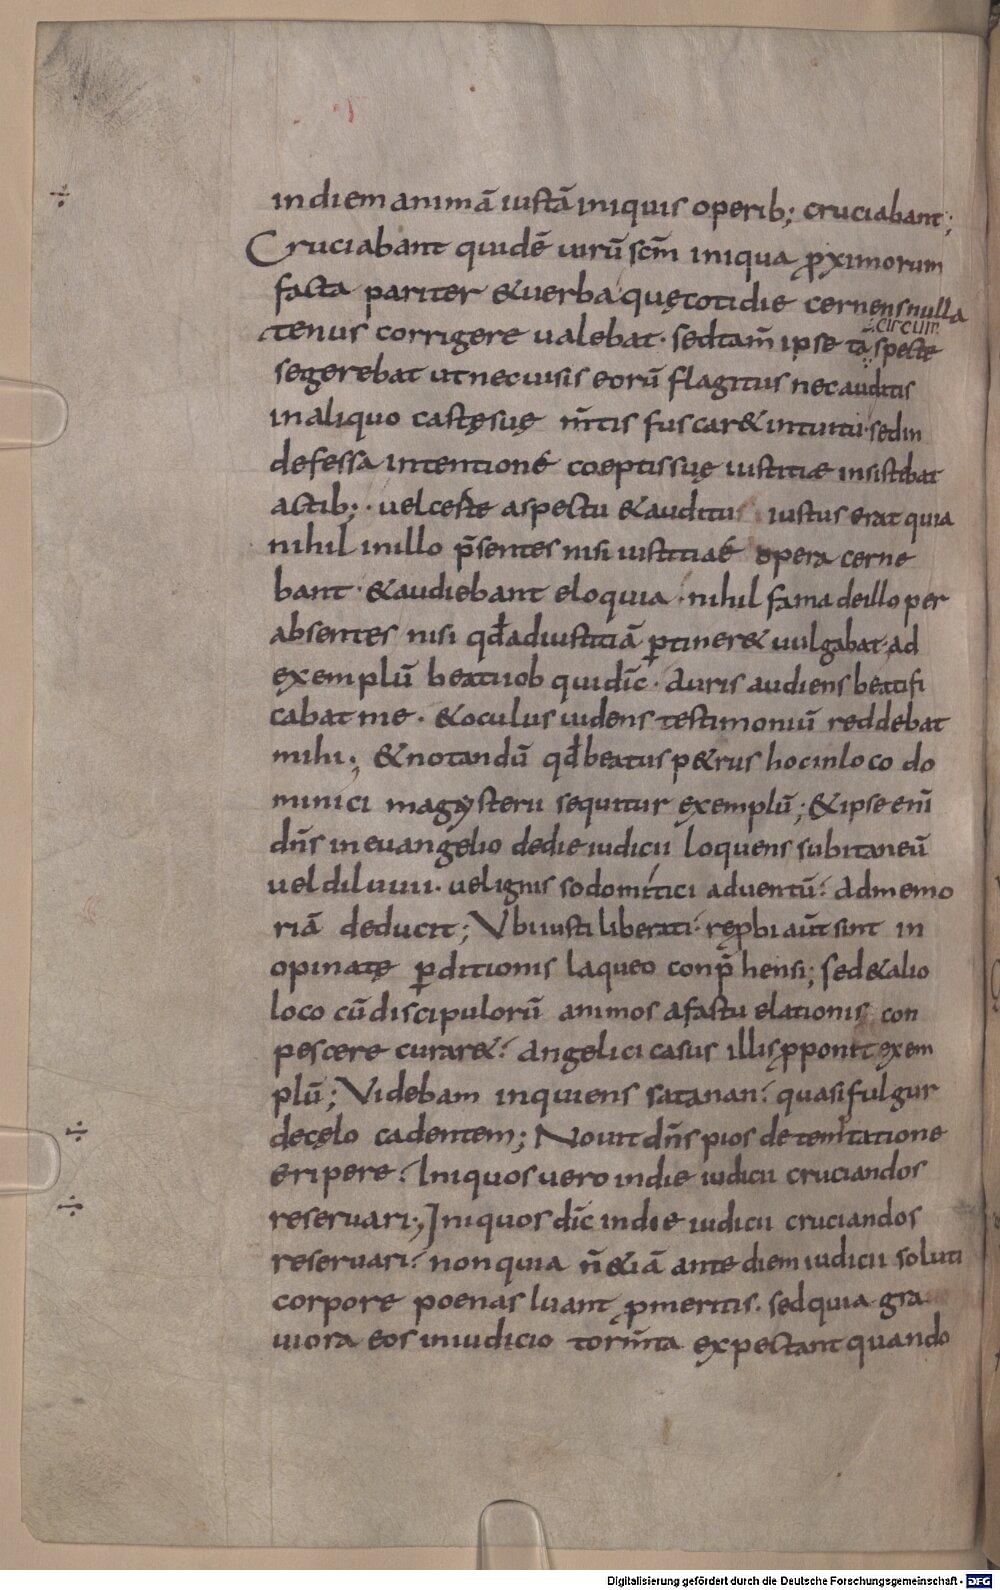 indiem animā iustā iniquis operib; cruciabant;
Cruciabant quidē uirū scm̄ iniqua ꝓximorum
facta pariter & uerba quę cotidie cernens nulla
tenus corrigere ualebat· sed tam̄ ipse ta circum specte
se gerebat ut nec uisis eorū flagitiis nec auditis
in aliquo castę suę m̄tis fuscar& intuitū· sed in
defessa intentione coeptis suę iustitiæ insistebat
actib;· uel certe aspectu & auditu iustus erat quia
nihil in illo p̄sentes nisi iustitiae opera cerne
bant· & audiebant eloquia· nihil fama de illo per
absentes nisi qđ ad iustitiā ꝑtiner& uulgabat· ad
exemplū beati iob qui dic̄· Auris audiens beatifi
cabat me· & oculus uidens testimoniū reddebat
mihi; & notandū qđ beatus p&rus hoc in loco do
minici magysterii sequitur exemplū; & ipse enī
dn̄s in euangelio de die iudicii loquens subitaneū
uel diluuii· uel ignis sodomitici aduentū· ad memo
riā deducit; Vbi iusti liberati· reꝓbi aut̄ sint in
opinatę ꝑditionis laqueo conp̄hensi; sed & alio
loco cū discipulorū animos a fastu elationis con
pescere curar&· angelici casus illis ꝓponit exem
plū; Videbam inquiens satanan· quasi fulgur
de cęlo cadentem; Nouit dn̄s pios de temtatione
eripere· Iniquos uero in die iudicii cruciandos
reseruari; Iniquos dic̄ in die iudicii cruciandos
reseruari· non quia n̄ &iā ante diem iudicii soluti
corpore poenas luant ꝓ meritis· sed quia gra
uiora eos in iudicio torm̄ta expectant quando
Digitalisierung gefördert durch die Deutsche Forschungsgemeinschaft - DFG